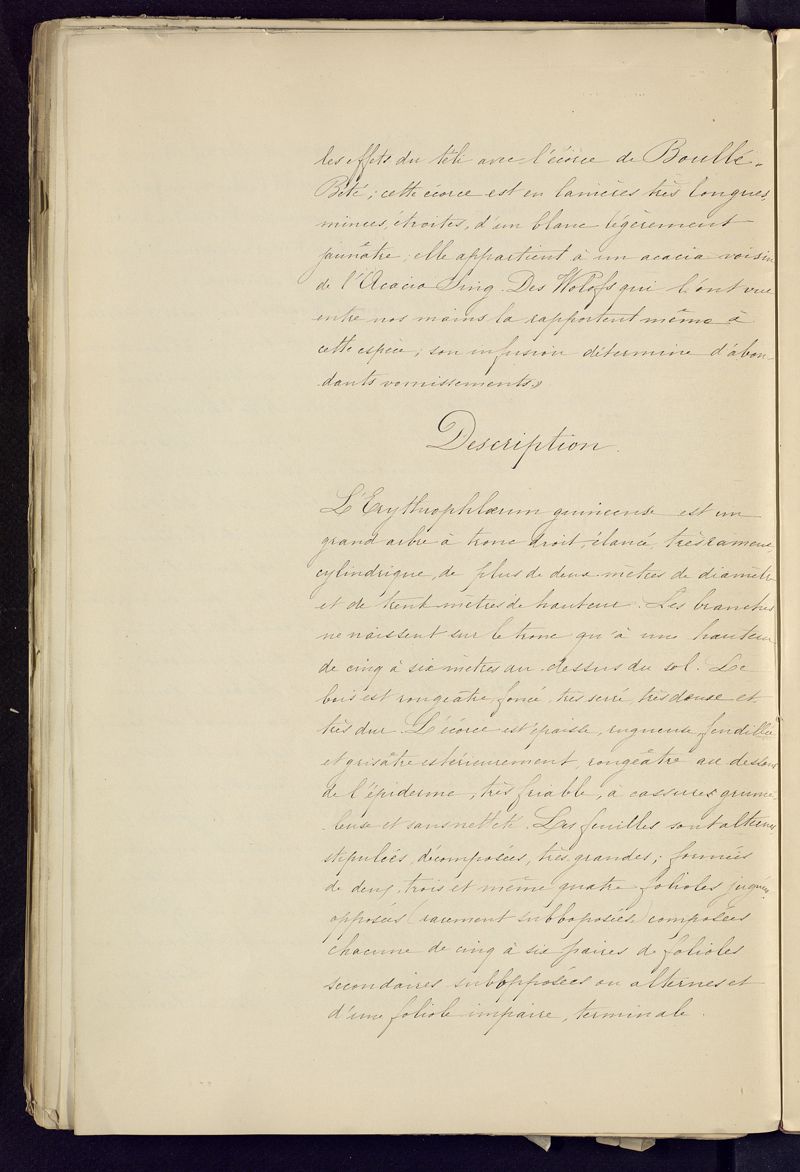 les effets du téli avec l'écorce de Boullé-
Bété; cette écorce est en lanières très longues,
minces, étroites, d'un blanc légèrement
jaunâtre, elle appartient à un acacia voisin
de l'Acacia Sing. Des Wolofs qui l'ont vue
entre nos mains la rapportent même à
cette espèce; son infusion détermine d'abon-
dants vomissements»
Description.
L'Erythrophlœum guineense est un
grand arbre à tronc droit, élancé, très rameux,
cylindrique, de plus de deux mètres de diamètre
et de trente mètres de hauteur. Les branches
ne naissent sur le tronc qu'à une hauteur
de cinq à six mètres au-dessus du sol. Le
bois est rougeâtre foncé, très serré, très dense et
très dur. L'écorce est épaisse, rugueuse, fendillée
et grisâtre extérieurement, rougeâtre au dessous
de l'épiderme, très friable, à cassures grume-
leuse et sans netteté. Les feuilles sont alternes,
stipulées, décomposées, très grandes; formées
de deux, trois et même quatre folioles juguées
opposées (rarement subbopposées) composées
chacune de cinq à six paires de folioles
secondaires subbopposées ou alternes et
d'une foliole impaire, terminale.